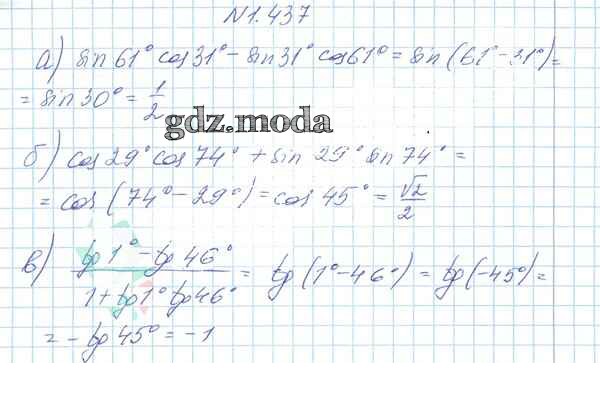 N 1.437
а) sin 61° cos 31° - sin 31° cos 61° = sin (61° - 31°) =
= sin 30° = 1/2
gdz.moda
б) cos 29° cos 74° + sin 29° sin 74° =
= cos (74° - 29°) = cos 45° = √2/2
в) (tg 1° - tg 46°)/(1 + tg 1° tg 46°) = tg (1° - 46°) = tg (-45°) =
= - tg 45° = -1